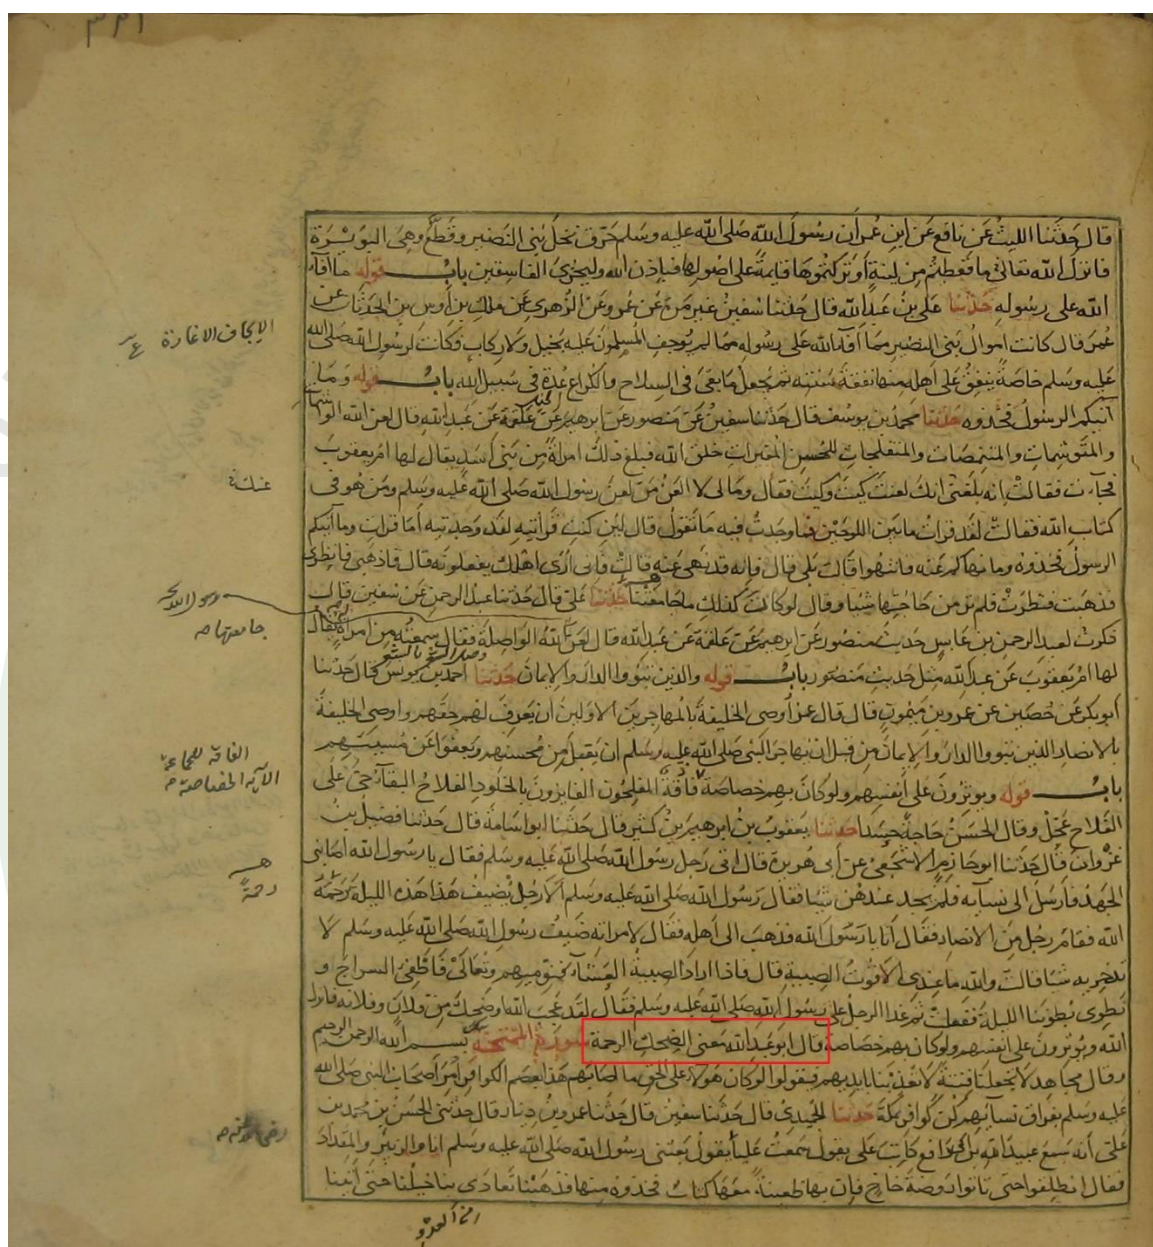 قال حدثنا الليث عن نافع عن ابن عمر ان رسول الله صلى الله عليه وسلم حرق نخل بني النضير وقطع وهي البويرة
فانزل الله تعالى ما قطعتم من لينة او تركتموها قايمة على اصولها فباذن الله وليخزي الفاسقين باب قوله ما افاء
الله على رسوله حدثنا علي بن عبد الله قال حدثنا سفين غير مرة عن عمرو عن الزهري عن ملك بن اوس بن الحدثان عن
عمر قال كانت اموال بني النضير مما افاء الله على رسوله مما لم يوجف المسلمون عليه بخيل ولا ركاب فكانت لرسول الله صلى الله
عليه وسلم خاصة ينفق على اهله منها نفقة سنته ثم يجعل ما بقي في السلاح والكراع عدة في سبيل الله باب قوله وما
آتيكم الرسول فخذوه حدثنا محمد بن يوسف قال حدثنا سفين عن منصور عن ابرهيم عن علقمة عن عبد الله قال لعن الله الواشمات
والمتوشمات والمتنمصات والمتفلجات للحسن المغيرات خلق الله فبلغ ذلك امراة من بني اسد يقال لها ام يعقوب
فجاءت فقالت انه بلغني انك لعنت كيت وكيت فقال ومالي لا العن من لعن رسول الله صلى الله عليه وسلم ومن هو في
كتاب الله فقالت لقد قرات ما بين اللوحين فما وجدت فيه ما تقول قال لئن كنت قراتيه لقد وجدتيه أما قرات وما آتيكم
الرسول فخذوه وما نهاكم عنه فانتهوا قالت بلى قال فانه قد نهى عنه قالت فاني ارى اهلك يفعلونه قال فاذهبي فانظري
فذهبت فنظرت فلم تر من حاجتها شيا فقال لو كانت كذلك ما جامعتنا حدثنا علي قال حدثنا عبد الرحمن عن سفين قال
ذكرت لعبد الرحمن بن عابس حديث منصور عن ابرهيم عن علقمة عن عبد الله قال لعن الله الواصلة فقال سمعته من امراة يقال
لها ام يعقوب عن عبد الله مثل حديث منصور باب قوله والذين تبوءوا الدار والايمان حدثنا احمد بن يونس قال حدثنا
أبو بكر عن حصين عن عمرو بن ميمون قال قال عمر أوصي الخليفة بالمهاجرين الاولين ان يعرف لهم حقهم واوصي الخليفة
بالانصار الذين تبوءوا الدار والايمان من قبل ان يهاجر النبي صلى الله عليه وسلم ان يقبل من محسنهم ويعفو عن مسيئهم
باب قوله ويوثرون على أنفسهم ولو كان بهم خصاصة فاقة المفلحون الفايزون بالخلود الفلاح البقاء حي على
الفلاح عجل وقال الحسن حاجة حسدا حدثنا يعقوب بن ابرهيم بن كثير قال حدثنا ابو اسامة قال حدثنا فضيل بن
غزوان قال حدثنا ابو حازم الاشجعي عن أبي هريرة قال اتى رجل رسول الله صلى الله عليه وسلم فقال يا رسول الله اصابني
الجهد فارسل الى نسائه فلم يجد عندهن شيا فقال رسول الله صلى الله عليه وسلم ألا رجل يضيف هذا هذه الليلة يرحمه
الله فقام رجل من الانصار فقال أنا يا رسول الله فذهب الى أهله فقال لامراته ضيف رسول الله صلى الله عليه وسلم لا
تدخريه شيا قالت والله ما عندي الا قوت الصبية قال فاذا اراد الصبية العشاء فنوميهم وتعالي فاطفيء السراج و
نطوي بطوننا الليلة ففعلت ثم غدا الرجل على رسول الله صلى الله عليه وسلم فقال لقد عجب الله او ضحك من فلان وفلانة فانزل
الله ويوثرون على انفسهم ولو كان بهم خصاصة قال ابو عبد الله معنى الضحك الرحمة سورة الممتحنة بسم الله الرحمن الرحيم
وقال مجاهد لا تجعلنا فتنة لا تعذبنا بايديهم فيقولوا لو كان هولاء على الحق ما اصابهم هذا بعصم الكوافر أمر أصحاب النبي صلى الله
عليه وسلم بفراق نسائهم كن كوافر بمكة حدثنا الحميدي قال حدثنا سفين قال حدثنا عمرو بن دينار قال حدثني الحسن بن محمد بن
علي أنه سمع عبيد الله بن ابي رافع كاتب علي يقول سمعت عليا يقول بعثني رسول الله صلى الله عليه وسلم انا والزبير والمقداد
فقال انطلقوا حتى تاتوا روضة خاخ فان بها ظعينة معها كتاب فخذوه منها فذهبنا تعادى بنا خيلنا حتى أتينا
الايجاف الاغارة
جامعتها
الفاقة الحاجة
رحمة
رضي الله عنه